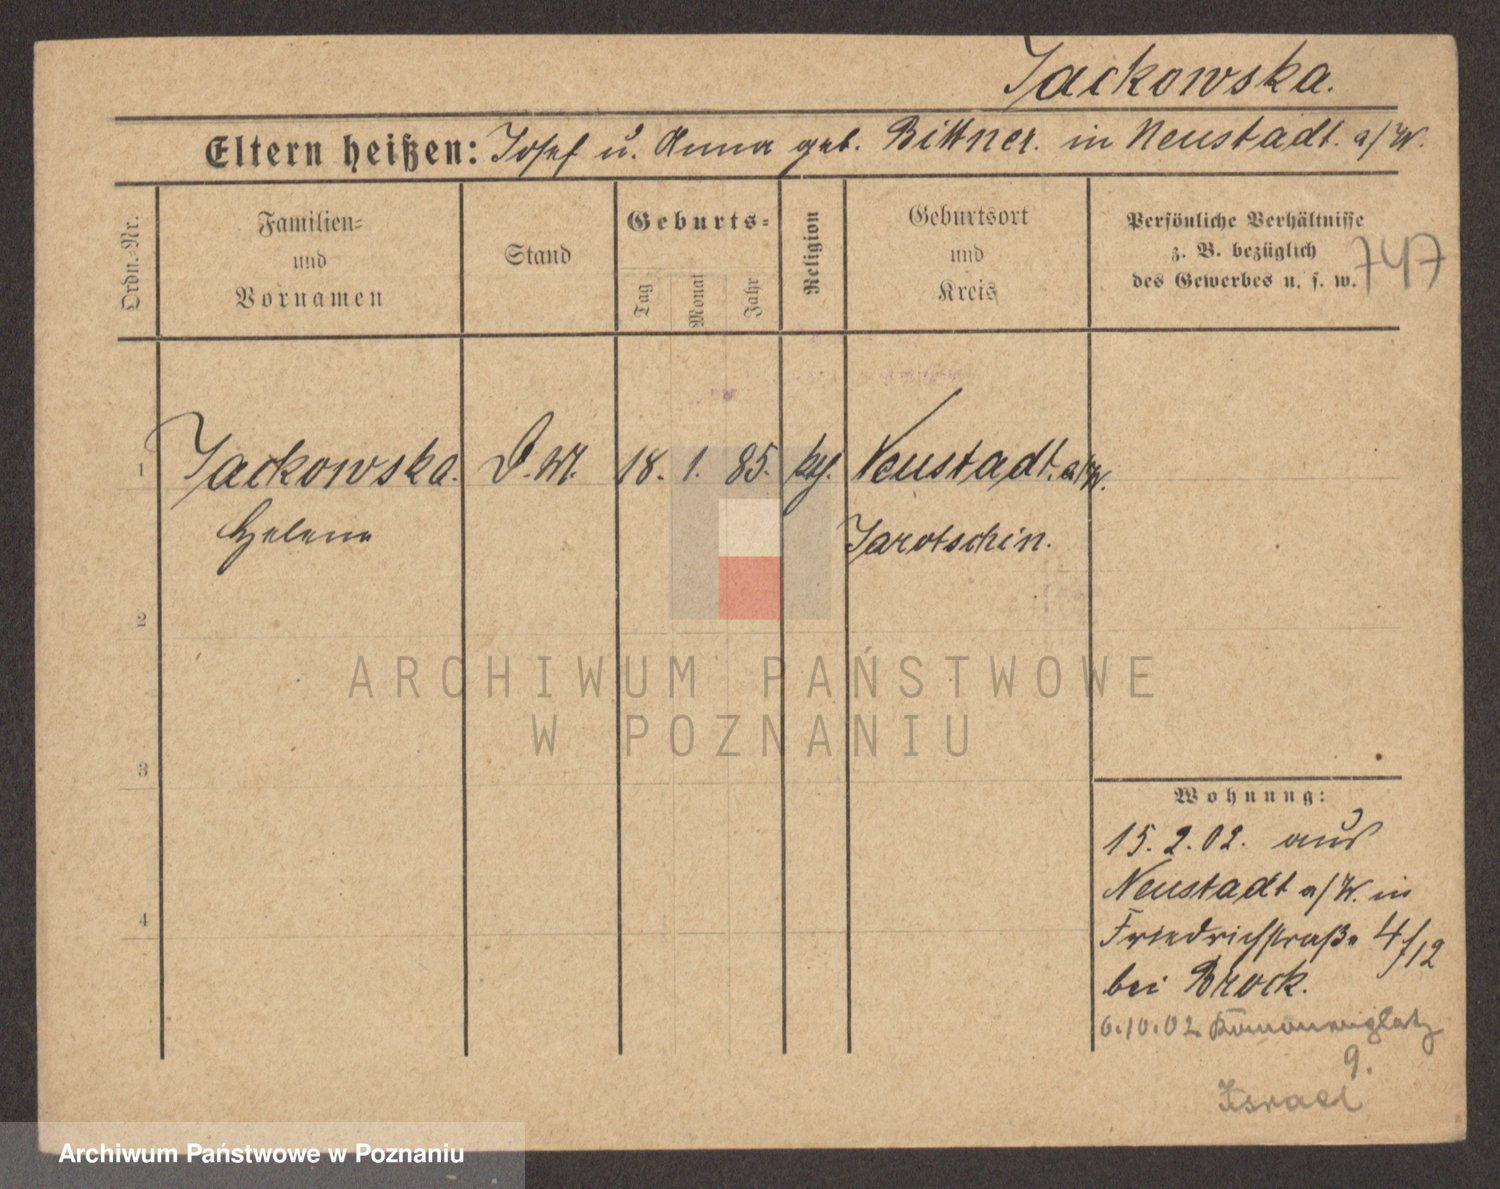 Jackowska.
Eltern heißen: Josef u. Anna geb. Bittner. in Neustadt. a/W.
Ordn.-Nr.
Familien- und Vornamen
Stand
Geburts-
Tag
Monat
Jahr
Religion
Geburtsort und Kreis
Persönliche Verhältnisse
z. B. bezüglich
des Gewerbes u. s. w.
747
1 Jackowska. D. M. 18. 1. 85. kth. Neustadt. a/W.
Helene Jarotschin.
2
3
4
Wohnung:
15. 2. 02. aus
Neustadt a/W. in
Friedrichstraße 4/12
bei Brock.
6.10.02
9.
Israel
ARCHIWUM PAŃSTWOWE
W POZNANIU
Archiwum Państwowe w Poznaniu